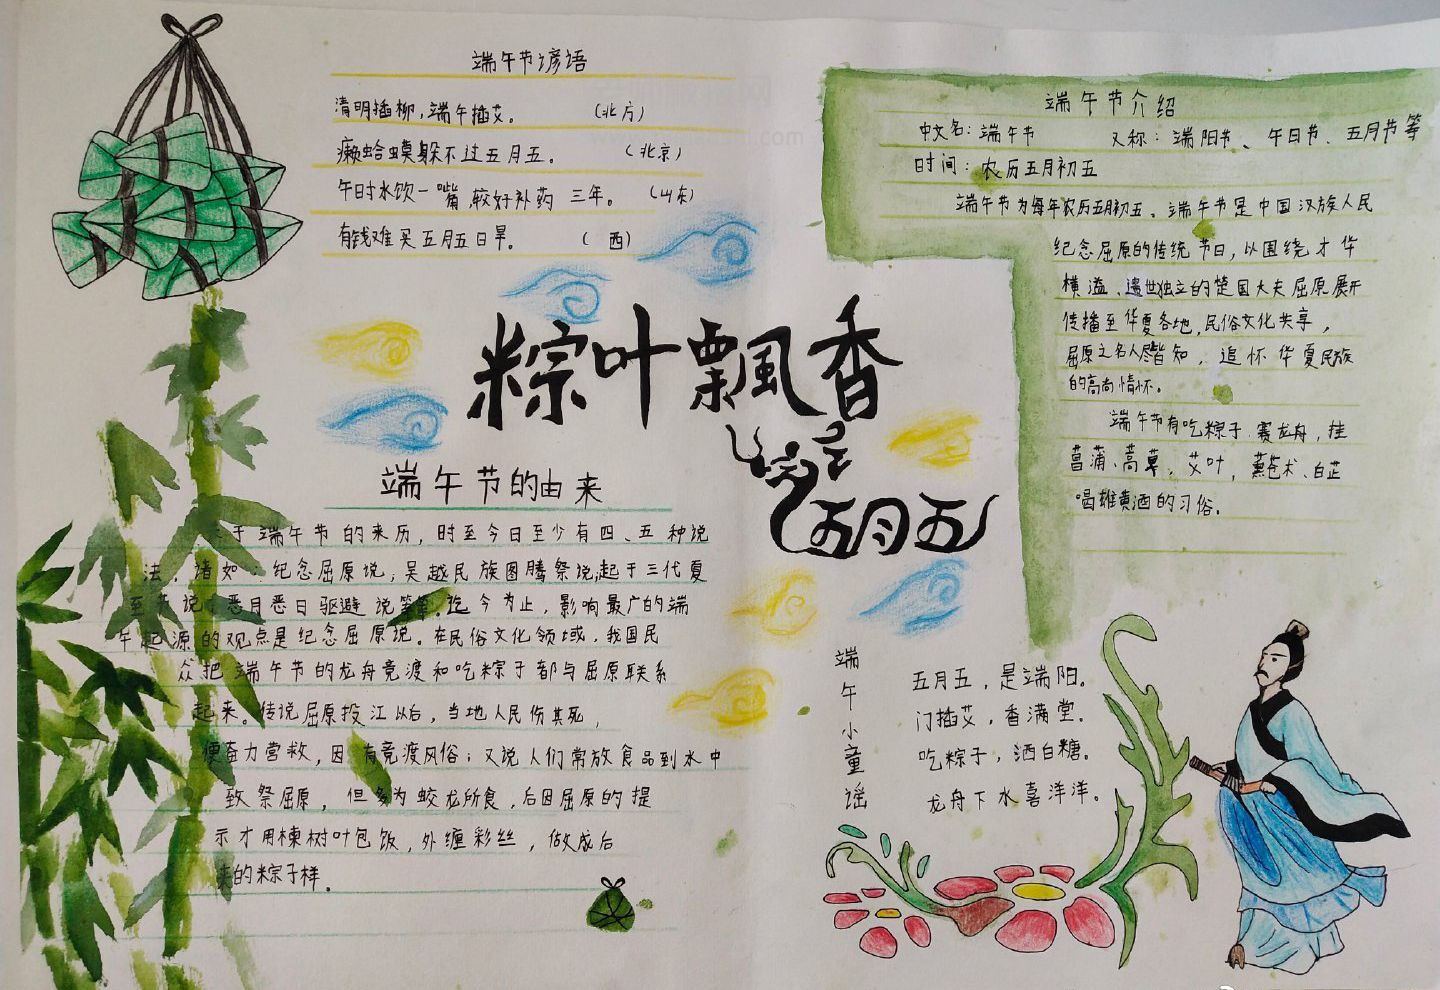 端午节谚语
清明插柳，端午插艾。（北方）
癞蛤蟆躲不过五月五。（北京）
午时水饮一嘴，较好补药三年。（山东）
有钱难买五月五日旱。（ 西）
粽叶飘香
五月五
端午节的由来
于端午节的来历，时至今日至少有四、五种说
法，诸如：纪念屈原说，吴越民族图腾祭说，起于三代夏
至节说，恶月恶日驱避说等等。迄今为止，影响最广的端
午起源的观点是纪念屈原说。在民俗文化领域，我国民
众把端午节的龙舟竞渡和吃粽子都与屈原联系
起来。传说屈原投江以后，当地人民伤其死，
便奋力营救，因有竞渡风俗；又说人们常放食品到水中
致祭屈原，但多为蛟龙所食，后因屈原的提
示才用楝树叶包饭，外缠彩丝，做成后
来的粽子样。
端午节介绍
中文名：端午节 又称：端阳节、午日节、五月节等
时间：农历五月初五
端午节为每年农历五月初五、端午节是中国汉族人民
纪念屈原的传统节日，以围绕才华
横溢、遗世独立的楚国大夫屈原展开
传播至华夏各地，民俗文化共享，
屈原之名人尽皆知，追怀华夏民族
的高尚情怀。
端午节有吃粽子，赛龙舟，挂
菖蒲、蒿草，艾叶，薰苍术、白芷
喝雄黄酒的习俗。
端午小童谣
五月五，是端阳。
门插艾，香满堂。
吃粽子，洒白糖。
龙舟下水喜洋洋。